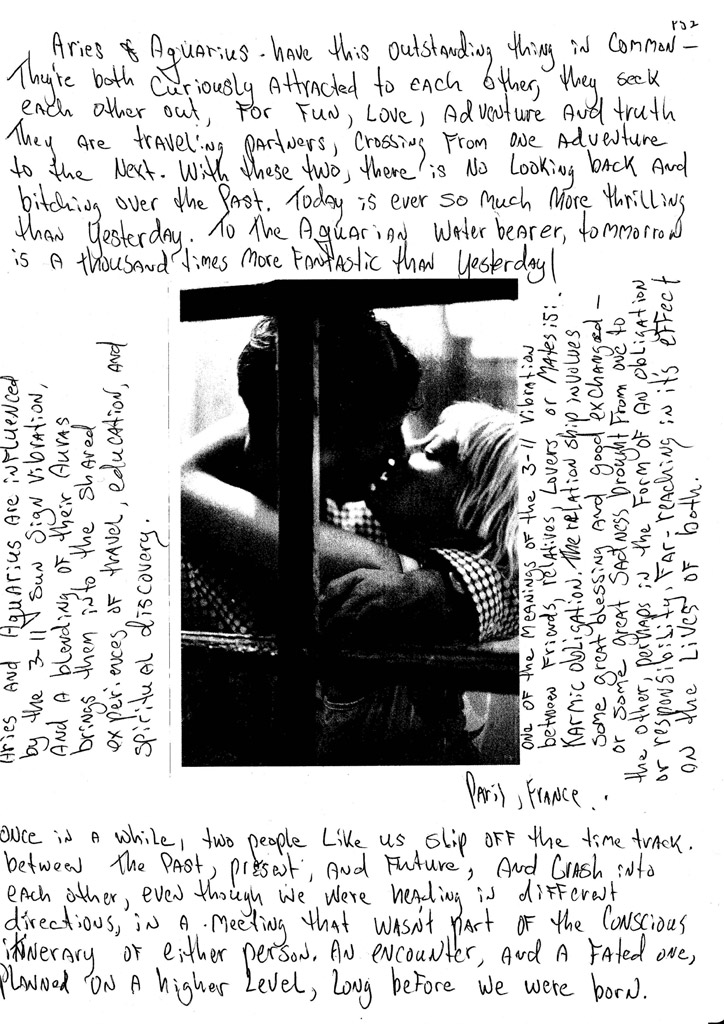 pg 2
Aries & Aquarius - have this outstanding thing in common -
They're both curiously attracted to each other, they seek
each other out, for fun, love, adventure and truth
They are traveling partners, crossing from one adventure
to the next. With these two, there is no looking back and
bitching over the past. Today is ever so much more thrilling
than yesterday. To the Aquarian water bearer, tommorrow
is a thousand times more fantastic than yesterday!
Aries and Aquarius are influenced
by the 3-11 Sun Sign vibration,
and a blending of their auras
brings them into the shared
experiences of travel, education, and
spiritual discovery.
One of the meanings of the 3-11 vibration
between friends, relatives, lovers or mates is:
Karmic obligation. The relation ship involves
some great blessing and good exchanged -
or some great sadness brought from one to
the other, perhaps in the form of an obligation
or responsibility, far-reaching in its effect
on the lives of both.
Paris, France..
Once in a while, two people like us slip off the time track.
between the past, present, and future, and crash into
each other, even though we were heading in different
directions, in a meeting that wasn't part of the conscious
itinerary of either person. An encounter, and a fated one,
planned on a higher level, long before we were born.